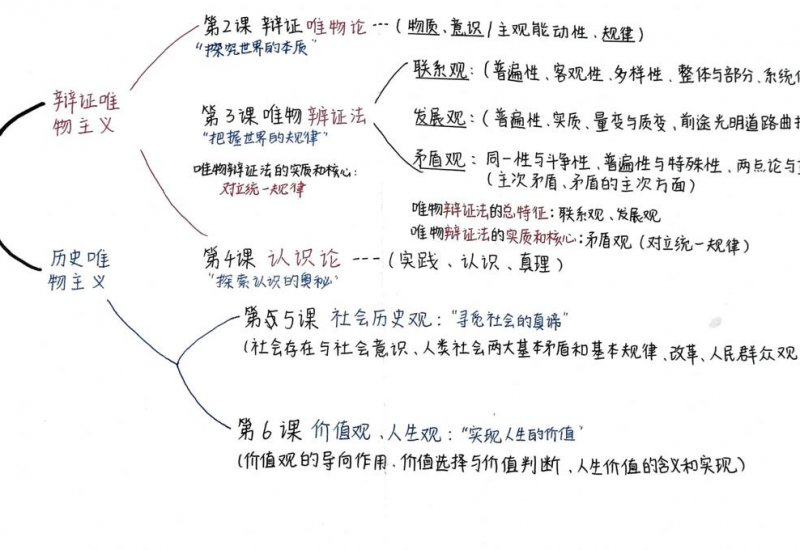 辩证唯
物主义
第2课 辩证唯物论---(物质、意识/主观能动性、规律)
"探究世界的本质"
第3课 唯物辩证法
"把握世界的规律"
唯物辩证法的实质和核心:
对立统一规律
联系观:(普遍性、客观性、多样性、整体与部分、系统
发展观:(普遍性、实质、量变与质变、前途光明道路曲
矛盾观:同一性与斗争性、普遍性与特殊性、两点论与
(主次矛盾、矛盾的主次方面)
唯物辩证法的总特征:联系观、发展观
唯物辩证法的实质和核心:矛盾观(对立统一规律)
第4课 认识论---(实践、认识、真理)
"探索认识的奥秘"
历史唯
物主义
第5课 社会历史观:"寻觅社会的真谛"
(社会存在与社会意识、人类社会两大基本矛盾和基本规律、改革、人民群众观
第6课 价值观、人生观:"实现人生的价值"
(价值观的导向作用、价值选择与价值判断、人生价值的含义和实现)